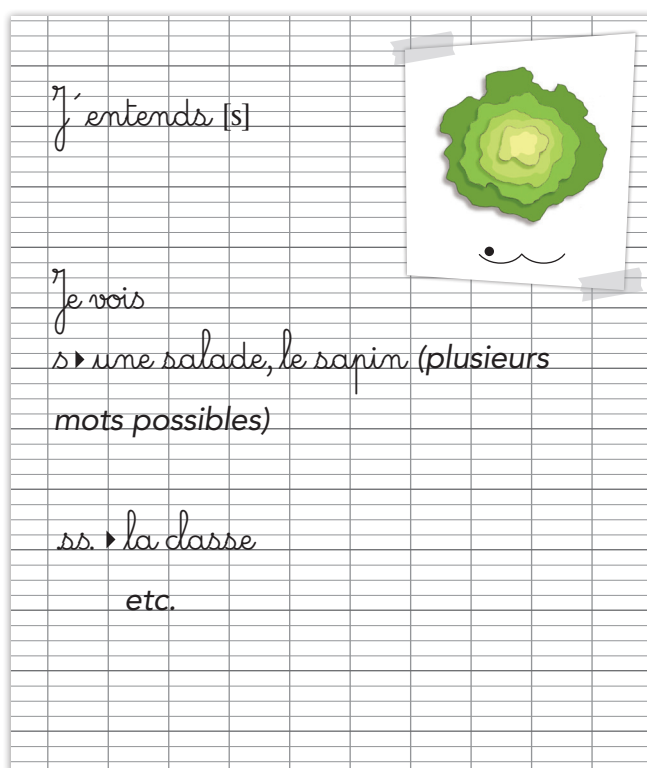 J'entends [s]
Je vois
s ▸ une salade, le sapin (plusieurs
mots possibles)
.ss. ▸ la classe
etc.